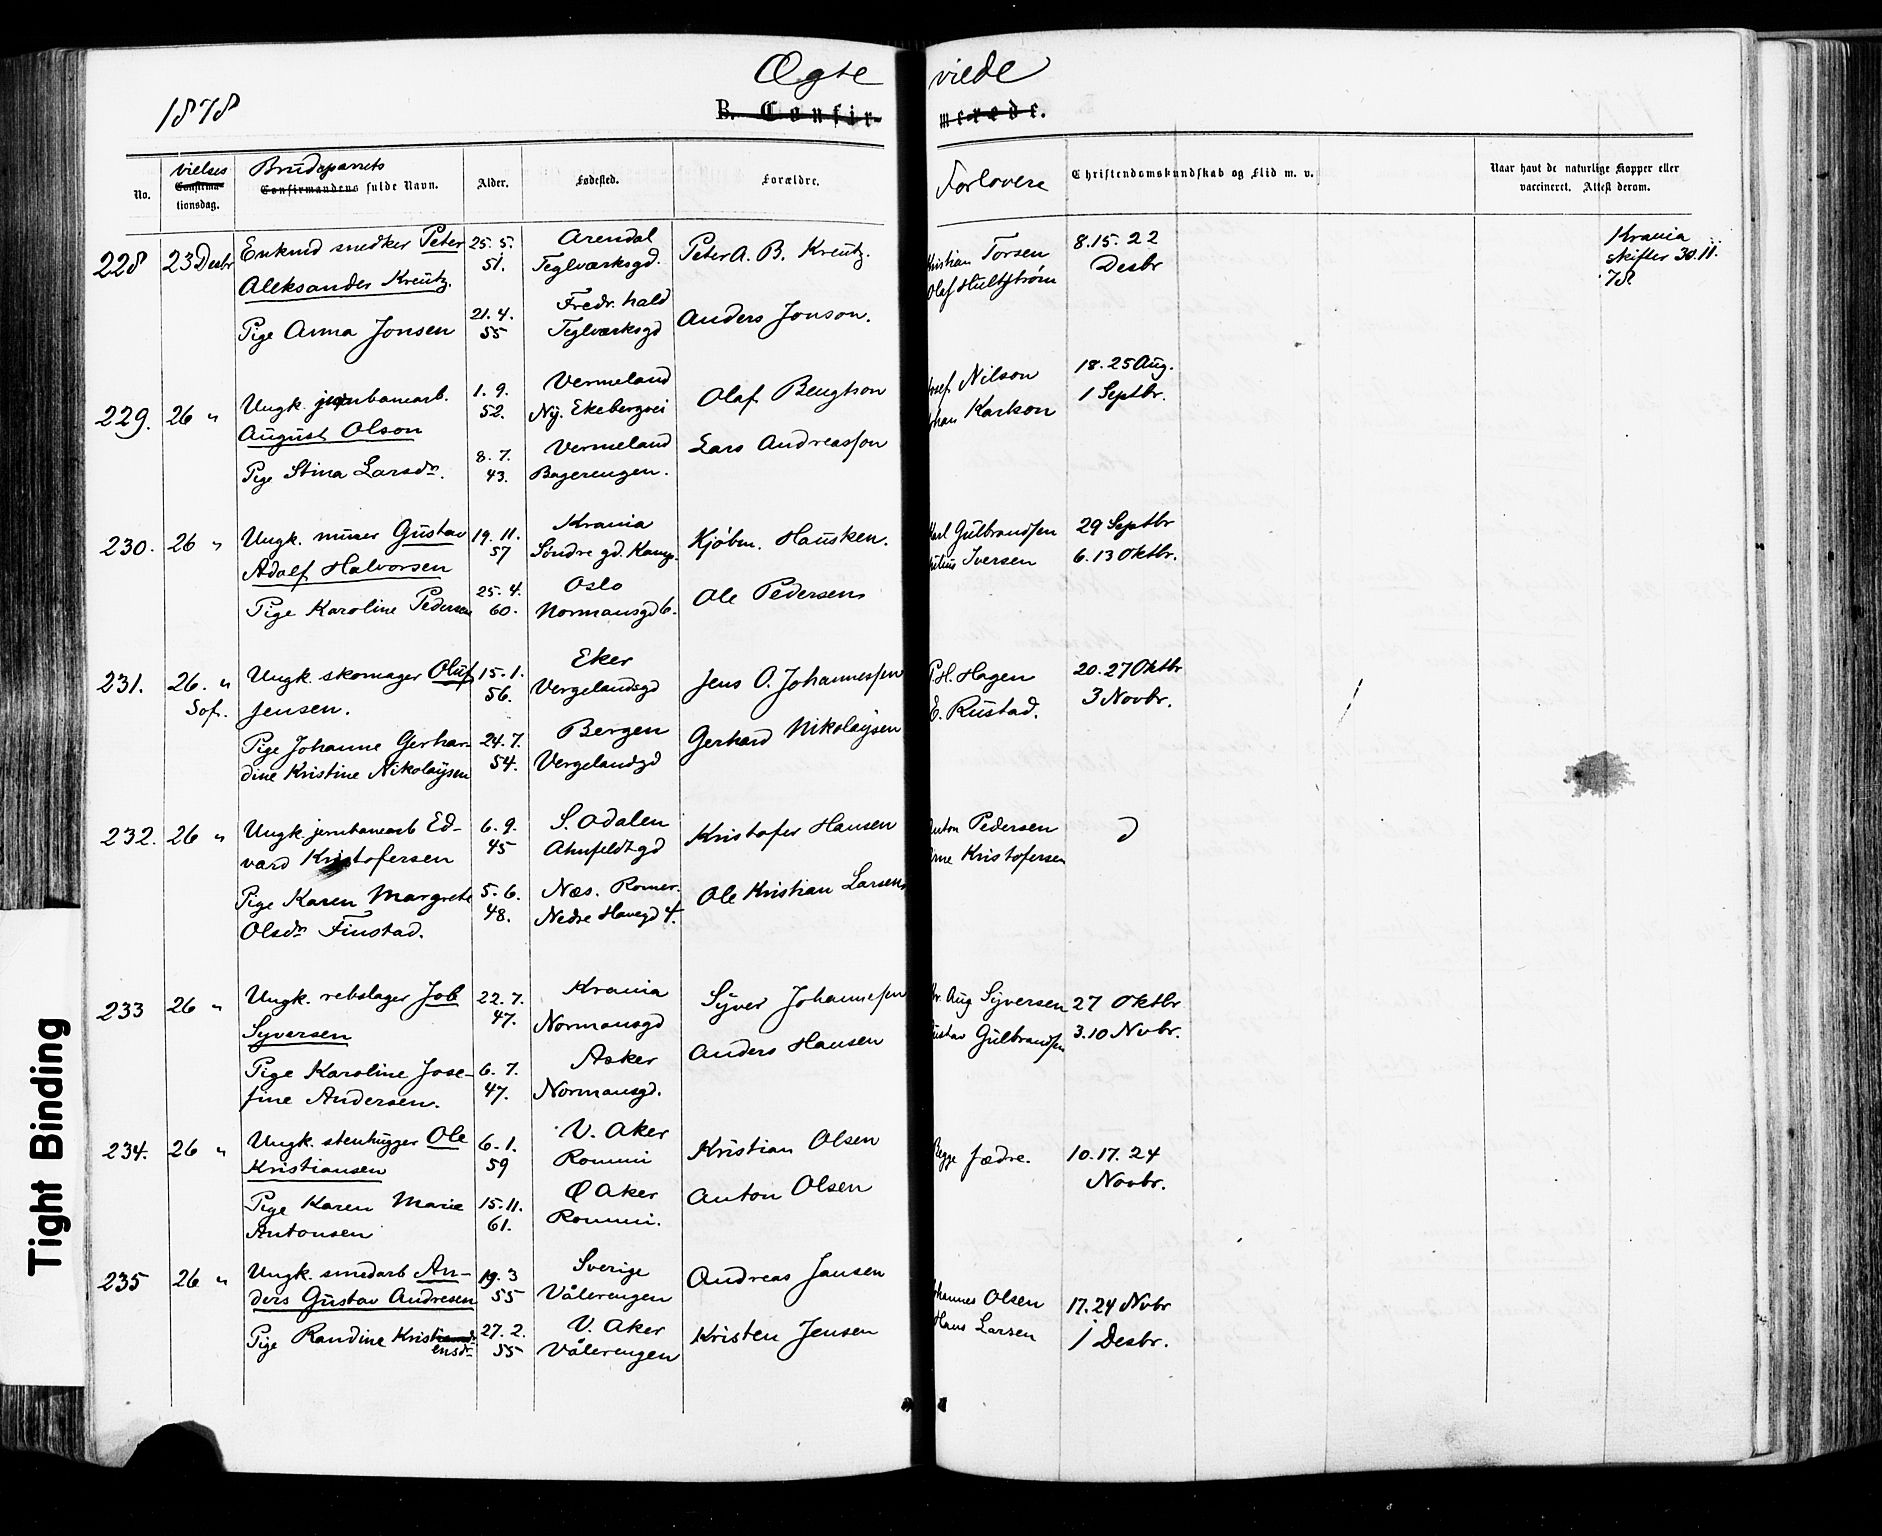 Ægte viede
1878
B. Confir- merede.
No. vielses Confirma- tionsdag. Brudeparrets Confirmandens fulde Navn. Alder. Fødested. Forældre. Forlovere Christendomskundskab og Flid m. v. Naar havt de naturlige Kopper eller vaccineret. Attest derom.
228 23 Desbr Enkmd snedker Peter 25. 5. Arendal Peter A. B. Kreutz. Kristian Torsen 8. 15. 22 Krania
Aleksander Kreutz. 51. Teglværksgd. Olaf Hultstrøm Desbr skifter 30.11.
78
Pige Anna Jonsen 21. 4. Fredr.hald Anders Jonson.
55 Teglværksgd
229. 26 " Ungk. jernbanearb. 1. 9. Vermeland Olaf Bengtson Josef Nilson 18. 25 Aug.
August Olson 52. Ny. Ekebergvei Johan Karlson 1 Septbr.
Pige Stina Larsdr. 8. 7. Vermeland Lars Andreasson
43. Bagerengen.
230. 26 " Ungk. murer Gustav 19. 11. Krania Kjøbm. Hausken. Karl Gulbrandsen 29 Septbr
Adolf Halvorsen 57 Søndre gd. Kamp. Iversen 6. 13 Oktbr.
Pige Karoline Pedersen 25. 4. Oslo Ole Pedersen
60. Normansgd 6.
231. 26. " Ungk. skomager Oluf 15. 1. Eker Jens O. Johannessen P. H. Hagen 20. 27 Oktbr
Sof. Jensen. 56. Vergelandsgd E. Rustad. 3 Novbr.
Pige Johanne Gerhar- 24. 7. Bergen Gerhard Nikolaysen
dine Kristine Nikolaysen 54. Vergelandgd
232. 26 " Ungk. jernbanearb Ed- 6. 9. S. Odalen Kristofer Hansen Anton Pedersen
vard Kristofersen 45 Ahnfeldtgd Arne Kristofersen
Pige Karen Margrete 5. 6. Næs. Romer. Ole Kristian Larsen
Olsdr Finstad. 48. Nedre Havegd 4.
233 26 " Ungk. rebslager Job 22. 7. Krania Syver Johannesen Kr. Aug Syversen 27 Oktbr
Syversen 47. Normansgd Gustav Gulbrandsen 3. 10 Novbr.
Pige Karoline Jose- 6. 7. Asker Anders Hansen
fine Andersen. 47. Normansgd.
234. 26 " Ungk. stenhugger Ole 6. 1. V. Aker Kristian Olsen Begge fædre. 10. 17. 24
Kristiansen 59 Rommi Novbr.
Pige Karen Marie 15. 11. Ø Aker Anton Olsen
Antonsen 61. Rommi.
235 26 " Ungk. smedarb An- 19. 3 Sverige Andreas Jansen Johannes Olsen 17. 24 Novbr
ders Gustav Andresen 55 Vålerengen Hans Larsen 1 Desbr.
Pige Randine Kristi 27. 2. V. Aker Kristen Jensen
ensdr 55 Vålerengen
Tight Binding